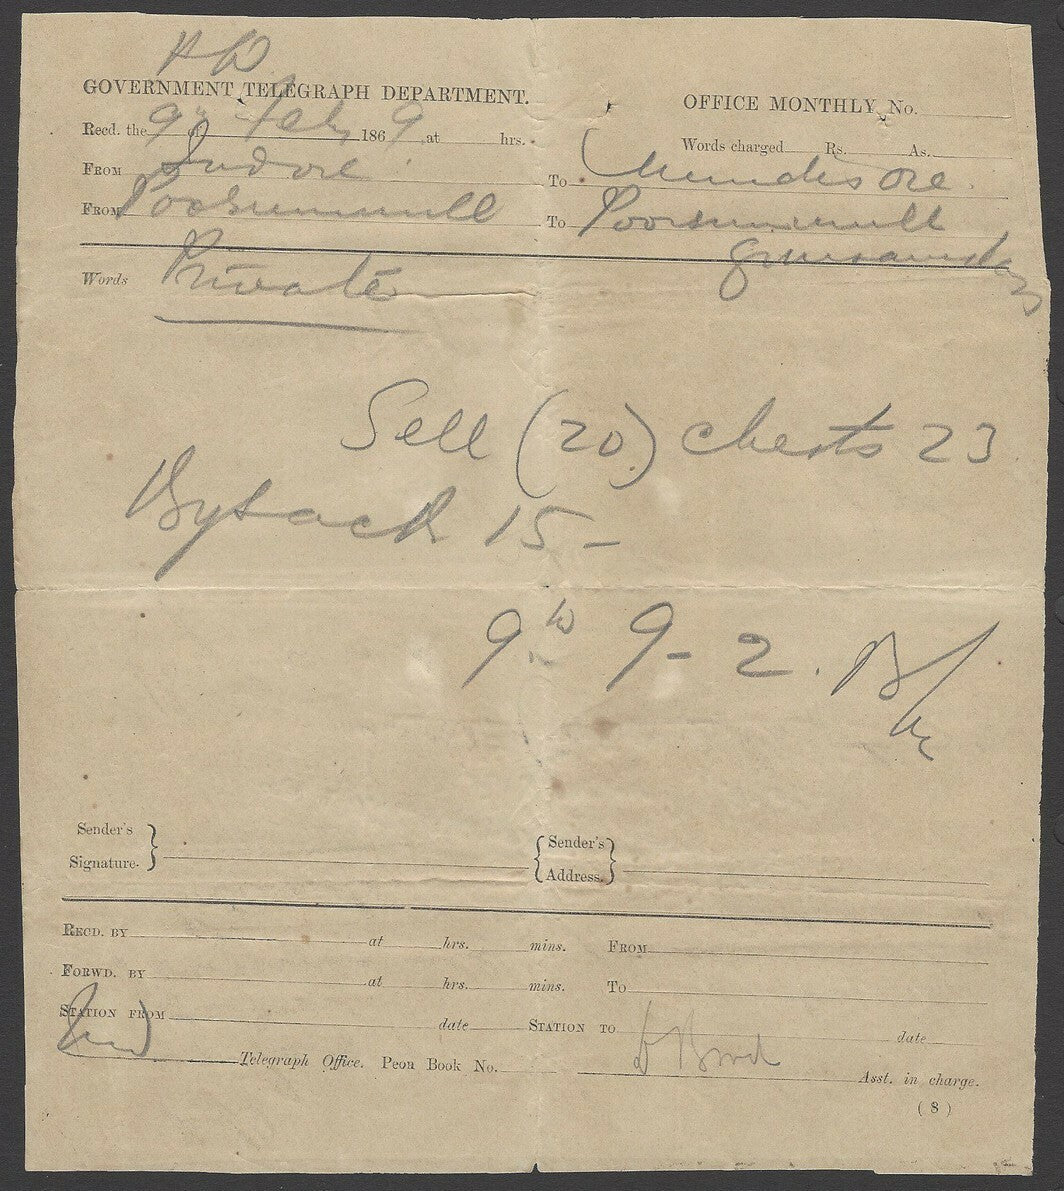 GOVERNMENT TELEGRAPH DEPARTMENT.
OFFICE MONTHLY No.
Recd. the 9th Feby 1869 at hrs.
Words charged Rs. As.
FROM Indore
To Mundisore
FROM Poorunmull
To Poorunmull
Words Private
Sell (20) chests 23
Bysack 15-
9th 9-2.
Sender's Signature.
Sender's Address.
RECD. BY at hrs. mins. FROM
FORWD. BY at hrs. mins. To
STATION FROM date STATION TO date
Ind
Telegraph Office. Peon Book No. Asst. in charge.
(8)